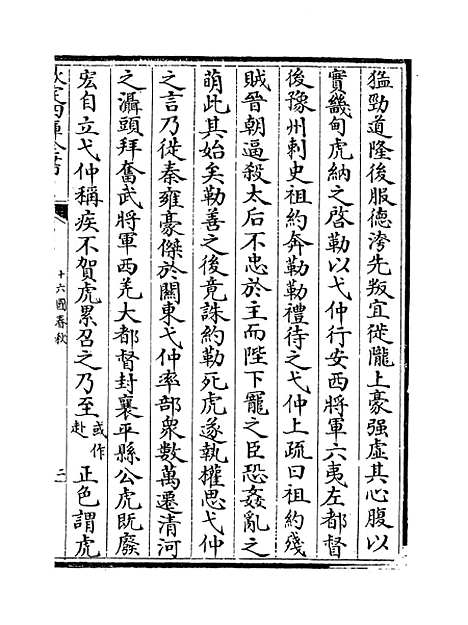 猛勁道隆後服德洿先叛宜徙隴上豪强虛其心腹以
實畿甸虎納之啓勒以弋仲行安西將軍六夷左都督
後豫州刺史祖約奔勒勒禮待之弋仲上疏曰祖約殘
賊晉朝逼殺太后不忠於主而陛下寵之臣恐姦亂之
萌此其始矣勒善之後竟誅約勒死虎遂執權思弋仲
之言乃徙秦雍豪傑於關東弋仲率部衆數萬遷清河
之灄頭拜奮武將軍西羌大都督封襄平縣公虎既廢
宏自立弋仲稱疾不賀虎累召之乃至或作赴正色謂虎
欽定四庫全書
十六國春秋
二